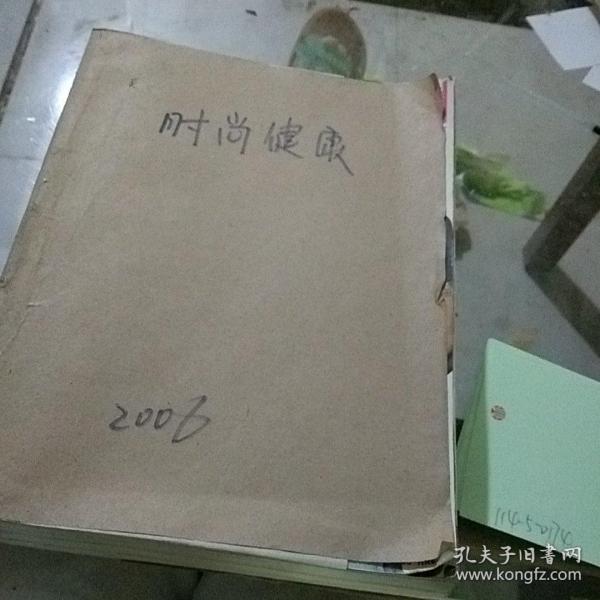 时尚健康
2006
114-5-0174
孔夫子旧书网
www.kongfz.com